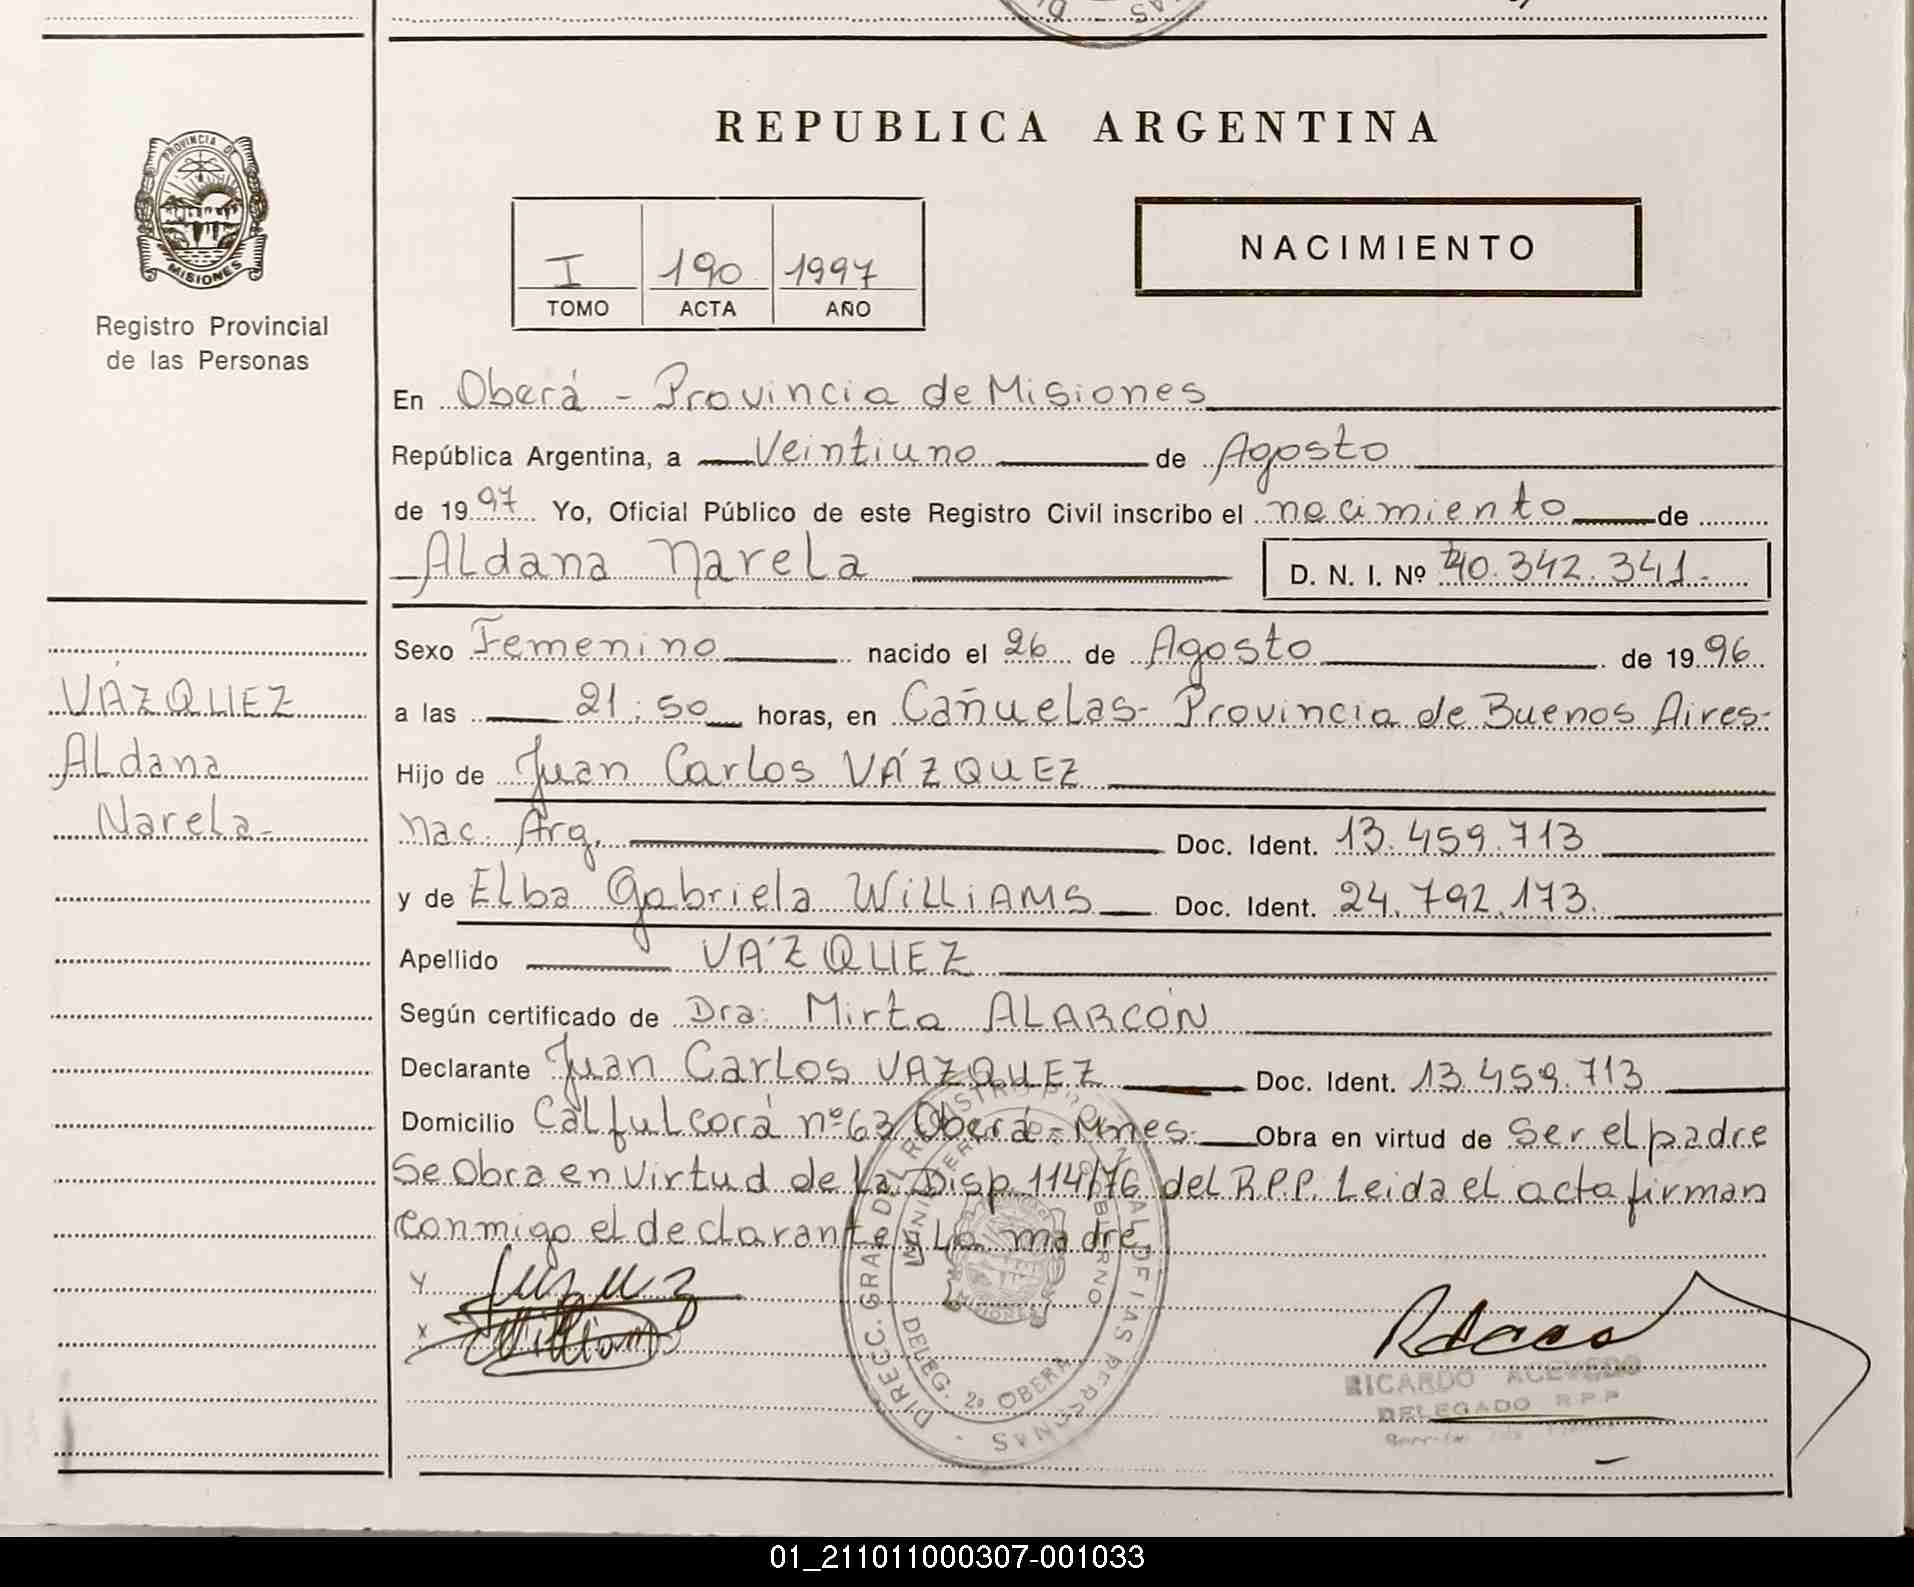 REPUBLICA ARGENTINA
PROVINCIA DE
MISIONES
Registro Provincial
de las Personas
I 190 1997
TOMO ACTA AÑO
NACIMIENTO
En Oberá - Provincia de Misiones
República Argentina, a Veintiuno de Agosto
de 1997 Yo, Oficial Público de este Registro Civil inscribo el nacimiento de
Aldana Narela D. N. I. Nº 40.342.341.-
Sexo Femenino nacido el 26 de Agosto de 1996
VÁZQUEZ
Aldana
Narela-
a las 21:50 horas, en Cañuelas- Provincia de Buenos Aires-
Hijo de Juan Carlos VÁZQUEZ
Nac. Arg. Doc. Ident. 13.459.713
y de Elba Gabriela WiLLiAMS Doc. Ident. 24.792.173.
Apellido VÁZQUEZ
Según certificado de Dra: Mirta ALARCÓN
Declarante Juan Carlos VAZQUEZ Doc. Ident. 13.459.713
Domicilio Calfulcorá nº63 Oberá-Mnes- Obra en virtud de ser el padre
Se Obra en Virtud de La Disp. 114/76 del R.P.P. Leida el acta firman
conmigo el declarante y La madre
Williams
DIRECC. GRAL. DEL REGISTRO PROVINCIAL DE LAS PERSONAS
DELEG. 2ª OBERA
RICARDO ACEVEDO
DELEGADO R.P.P
01_211011000307-001033